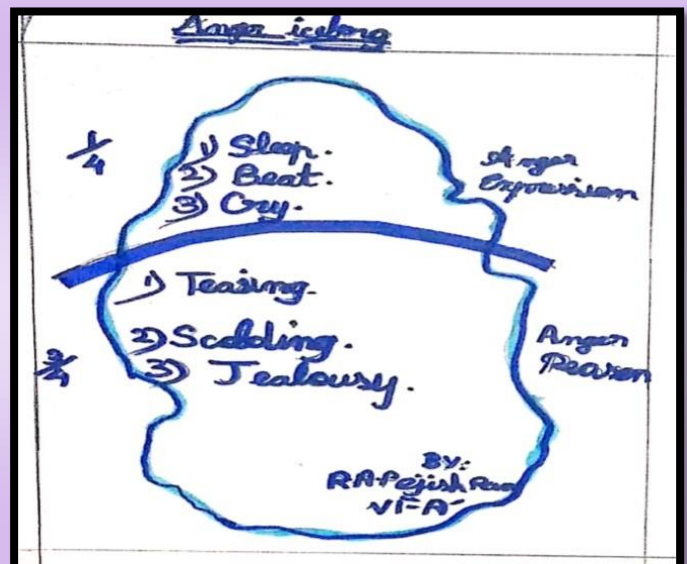 Anger iceberg
1/4
1) Sleep.
2) Beat.
3) Cry.
Anger
Expression
1) Teasing.
2) Scolding.
3) Jealousy.
3/4
Anger
Reason
BY:
VI-A